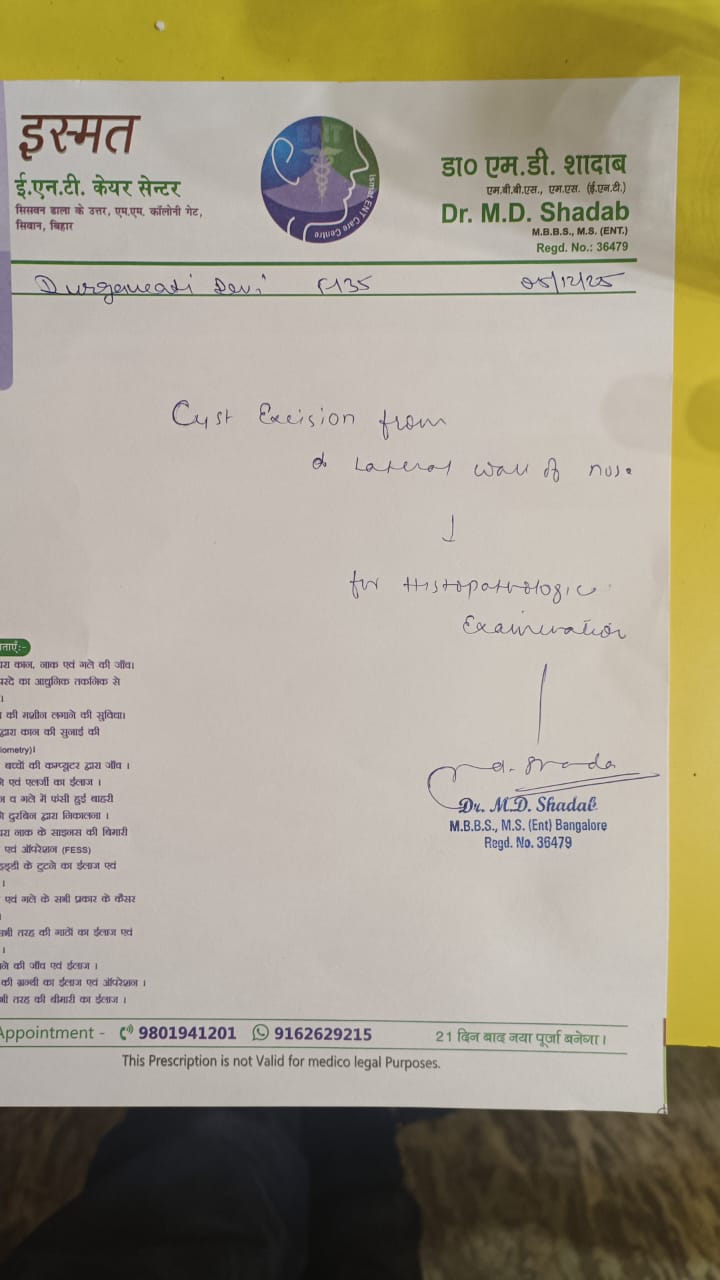 इस्मत
ई.एन.टी. केयर सेन्टर
सिसवन ढाला के उत्तर, एम.एम. कॉलोनी गेट,
सिवान, बिहार
ENT
Ismat ENT Care Centre
डा० एम.डी. शादाब
एम.बी.बी.एस., एम.एस. (ई.एन.टी.)
Dr. M.D. Shadab
M.B.B.S., M.S. (ENT.)
Regd. No.: 36479
Durgawati Devi F/35 05/12/25
Cyst Excision from
Lateral wall of nose
↓
for Histopathologic
Examination
Dr. M.D. Shadab
M.B.B.S., M.S. (Ent) Bangalore
Regd. No. 36479
कान, नाक एवं गले की जाँच।
का आधुनिक तकनिक से
।
की मशीन लगाने की सुविधा।
द्वारा कान की सुनाई की
iometry)।
बच्चों की कम्प्यूटर द्वारा जाँच ।
एवं एलर्जी का ईलाज ।
व गले में फंसी हुई बाहरी
दुरबिन द्वारा निकालना ।
नाक के साइनस की बिमारी
एवं ऑपरेशन (FESS)
के टुटने का ईलाज एवं
।
एवं गले के सभी प्रकार के कैंसर
तरह की गाठों का ईलाज एवं
।
की जाँच एवं ईलाज ।
की ग्रन्थी का ईलाज एवं ऑपरेशन ।
तरह की बीमारी का ईलाज ।
Appointment - 9801941201 9162629215 21 दिन बाद नया पूर्जा बनेगा।
This Prescription is not Valid for medico legal Purposes.